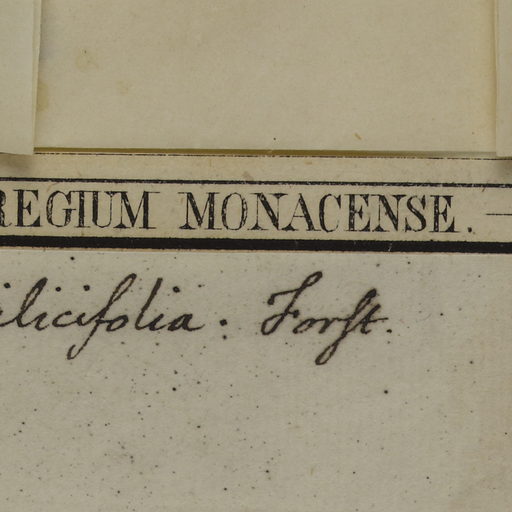 REGIUM MONACENSE.
ilicifolia. Forst.